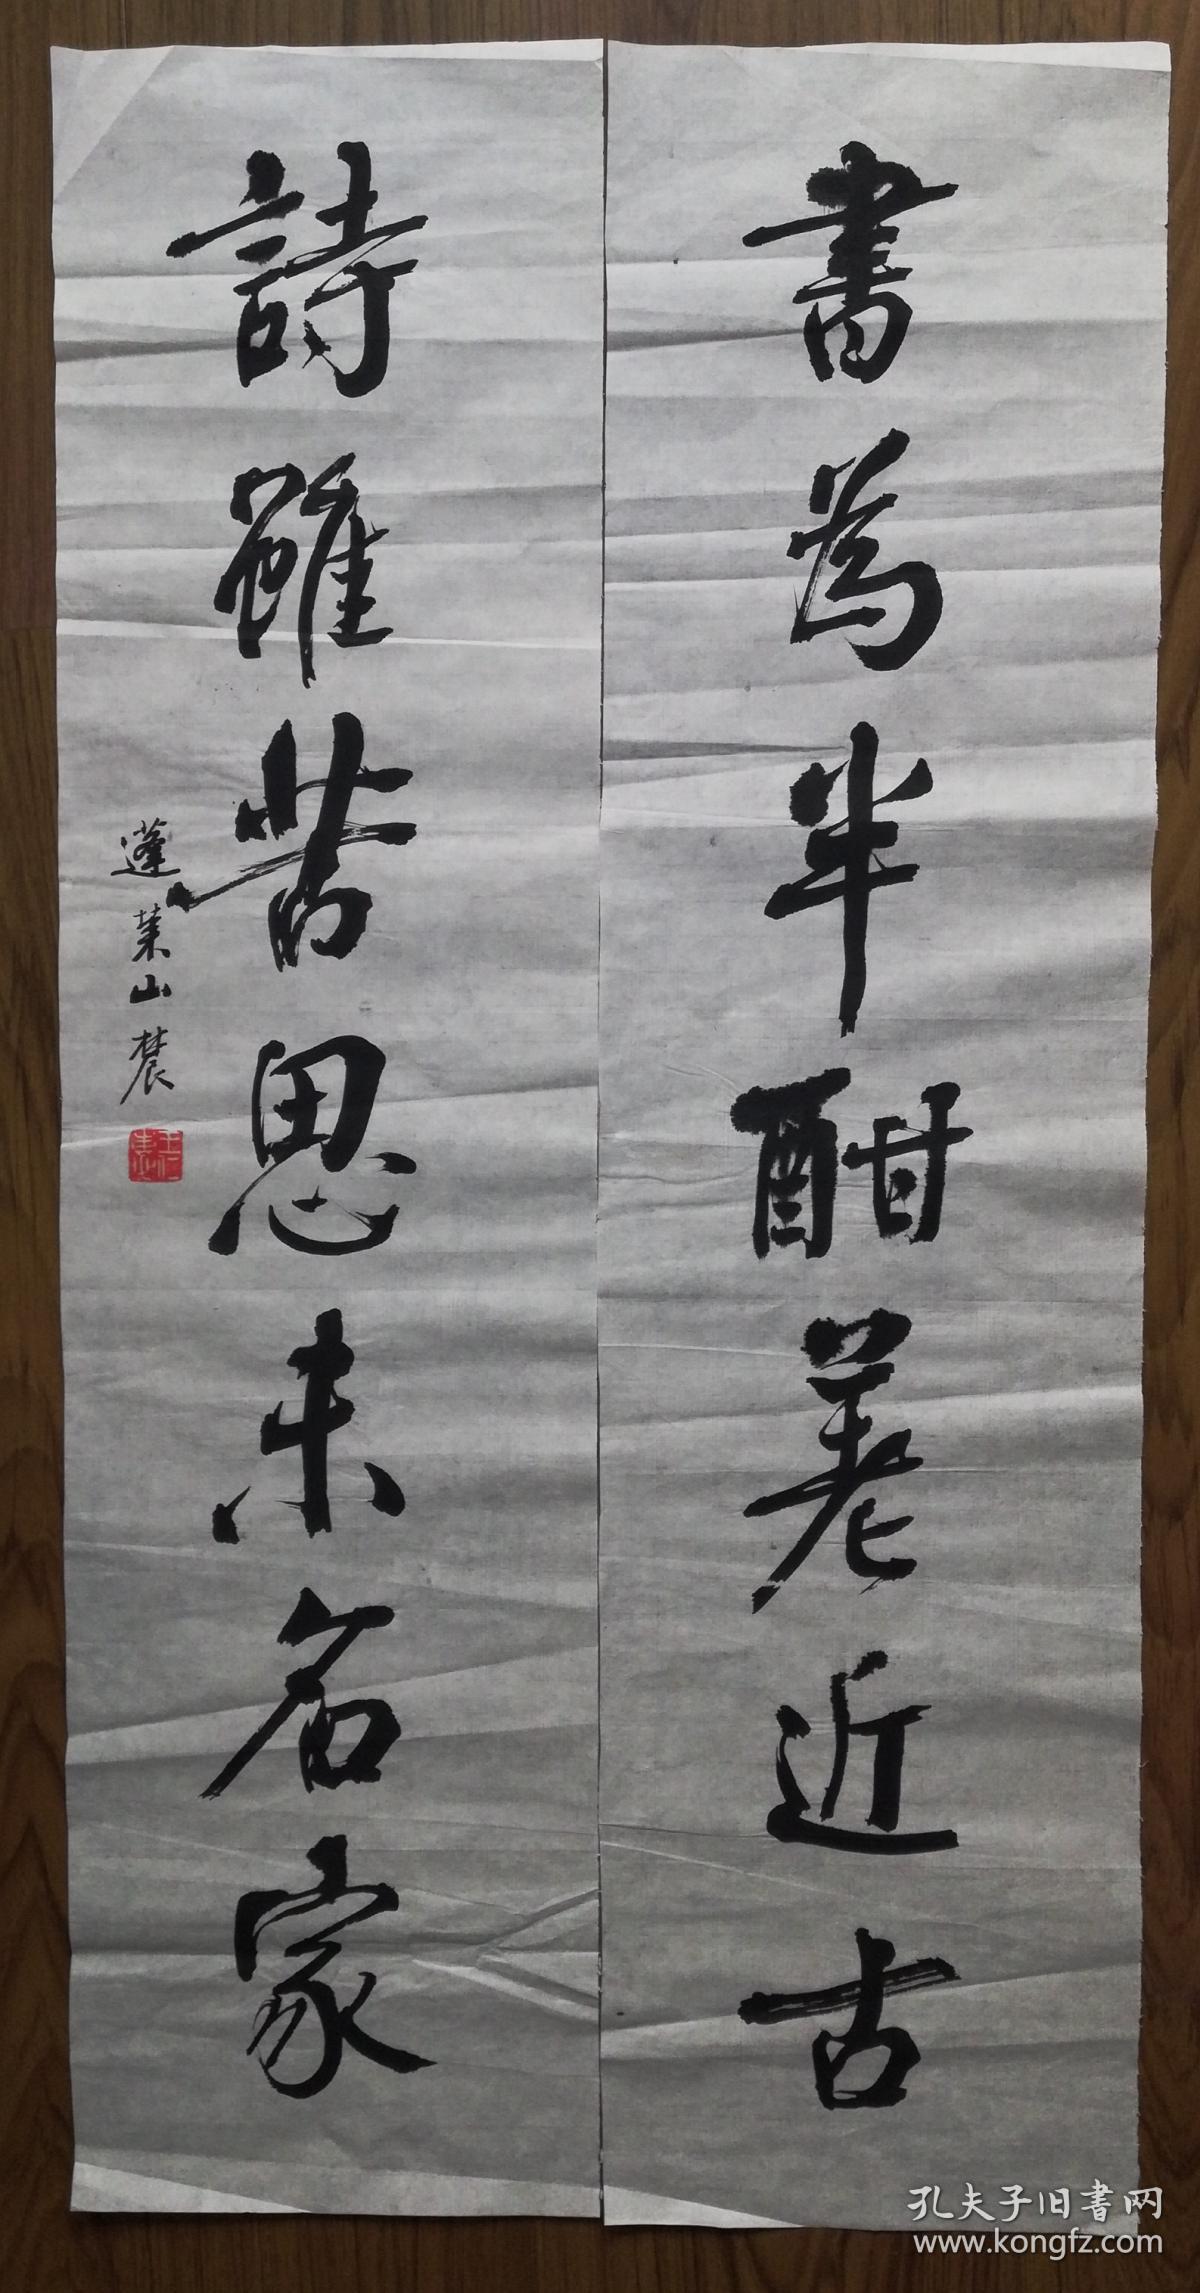 書為半酣差近古
詩雖苦思未名家
蓬萊山辳
孔夫子旧書网
www.kongfz.com